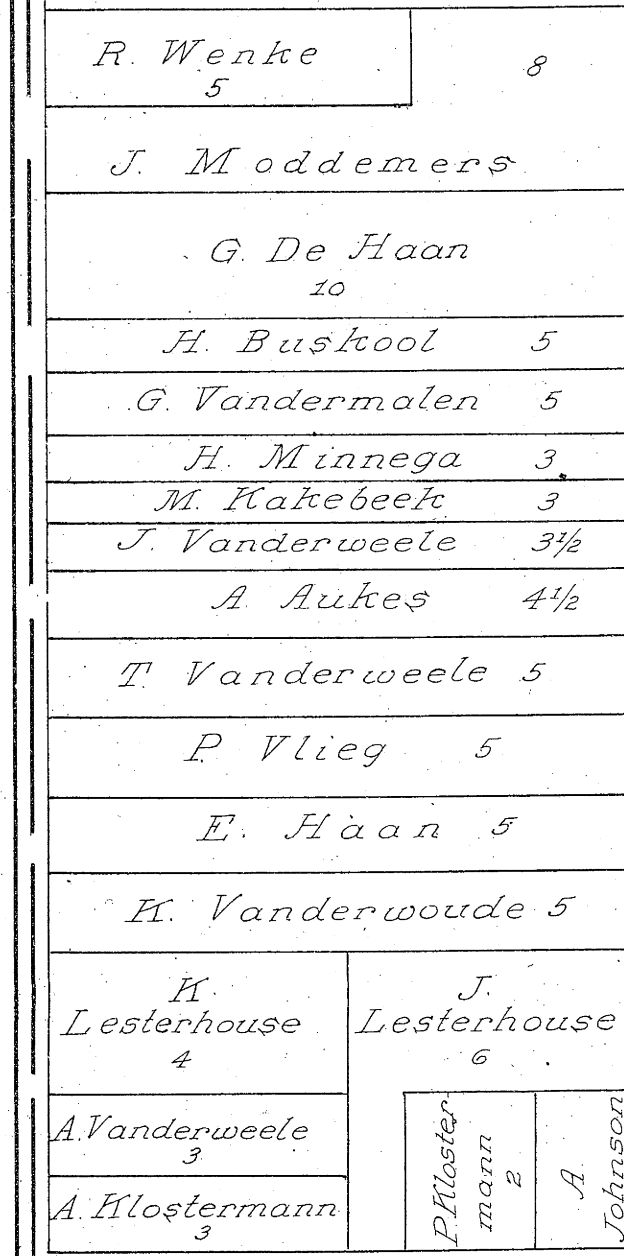 R. Wenke
5
8
J. Moddemers
G. De Haan
10
H. Buskool 5
G. Vandermalen 5
H. Minnega 3
M. Kakebeek 3
J. Vanderweele 3½
A. Aukes 4½
T. Vanderweele 5
P. Vlieg 5
E. Haan 5
K. Vanderwoude 5
K.
Lesterhouse
4
J.
Lesterhouse
6
A. Vanderweele
3
A. Klostermann
3
P. Kloster-
mann
2
A.
Johnson